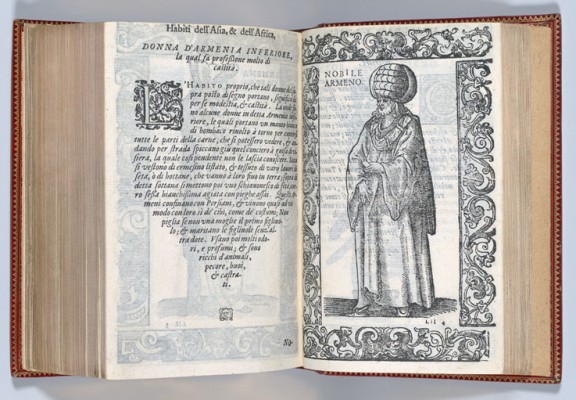 Habiti dell'Asia, & dell'Africa,
DONNA D'ARMENIA INFERIORE,
la qual fa professione molto di
castità.
L'HABITO proprio, che tali donne
pra posto di segno portano, significa
per se modestia, & castità.
no alcune donne in detta Armenia
riore, le quali portano un manto bianco
di bombace rivolto à torno per coprir
tutte le parti della carne, che si potessero vedere, &
dando per strada
siera, la quale così pendente non le lascia conoscere.
si vestono di ermesino listato, & tessuto di varii lavori
seta, ò di bottane, che vanno à loro fino in terra; sopra
detta sottana si mettono poi
ro sessa bianchissima agitata con pieghe assai. Questi
meni confinano con Persiani, & vivono quasi ad un
modo con loro sì de' cibi, come de' costumi; Non
piglia se non una moglie il primo figliuo
lo; & maritano le figliuole senz'al
tra dote. Usano poi molti odo
ri, e profumi; & sono
ricchi d'animali,
pecore, buoi,
& castra
ti.
NO
NOBILE
ARMENO.